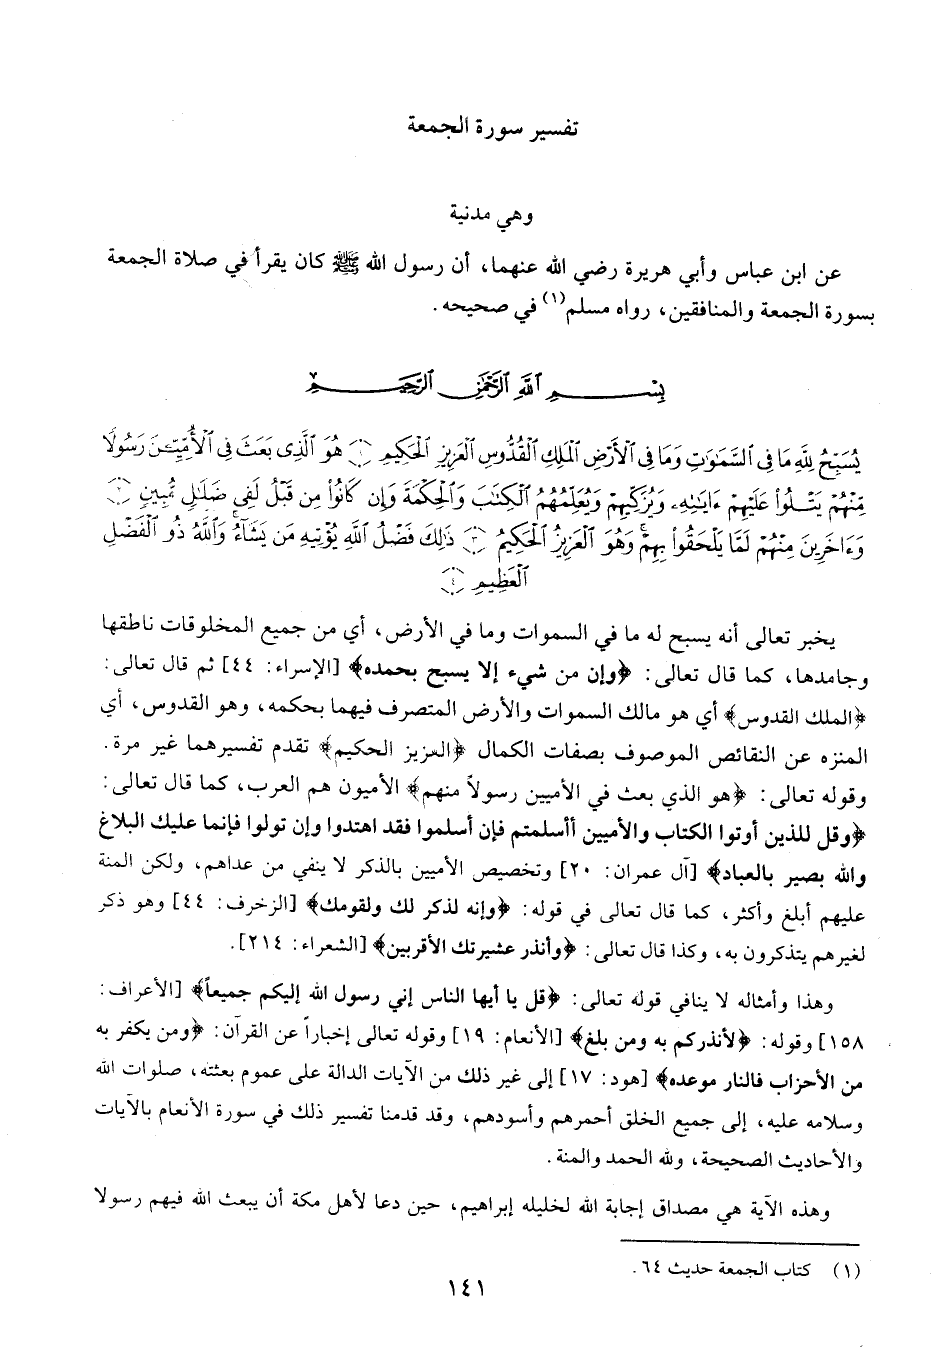 تفسير سورة الجمعة
وهي مدنية
عن ابن عباس وأبي هريرة رضي الله عنهما، أن رسول الله ﷺ كان يقرأ في صلاة الجمعة
بسورة الجمعة والمنافقين، رواه مسلم(١) في صحيحه.
بِسْمِ ٱللَّهِ ٱلرَّحْمَٰنِ ٱلرَّحِيمِ
يُسَبِّحُ لِلَّهِ مَا فِى ٱلسَّمَٰوَٰتِ وَمَا فِى ٱلْأَرْضِ ٱلْمَلِكِ ٱلْقُدُّوسِ ٱلْعَزِيزِ ٱلْحَكِيمِ ﴿١﴾ هُوَ ٱلَّذِى بَعَثَ فِى ٱلْأُمِّيِّـۧنَ رَسُولًا
مِّنْهُمْ يَتْلُوا۟ عَلَيْهِمْ ءَايَٰتِهِۦ وَيُزَكِّيهِمْ وَيُعَلِّمُهُمُ ٱلْكِتَٰبَ وَٱلْحِكْمَةَ وَإِن كَانُوا۟ مِن قَبْلُ لَفِى ضَلَٰلٍ مُّبِينٍ ﴿٢﴾
وَءَاخَرِينَ مِنْهُمْ لَمَّا يَلْحَقُوا۟ بِهِمْ ۚ وَهُوَ ٱلْعَزِيزُ ٱلْحَكِيمُ ﴿٣﴾ ذَٰلِكَ فَضْلُ ٱللَّهِ يُؤْتِيهِ مَن يَشَآءُ ۚ وَٱللَّهُ ذُو ٱلْفَضْلِ
ٱلْعَظِيمِ ﴿٤﴾
يخبر تعالى أنه يسبح له ما في السموات وما في الأرض، أي من جميع المخلوقات ناطقها
وجامدها، كما قال تعالى: ﴿وإن من شيء إلا يسبح بحمده﴾ [الإسراء: ٤٤] ثم قال تعالى:
﴿الملك القدوس﴾ أي هو مالك السموات والأرض المتصرف فيهما بحكمه، وهو القدوس، أي
المنزه عن النقائص الموصوف بصفات الكمال ﴿العزيز الحكيم﴾ تقدم تفسيرهما غير مرة.
وقوله تعالى: ﴿هو الذي بعث في الأميين رسولاً منهم﴾ الأميون هم العرب، كما قال تعالى:
﴿وقل للذين أوتوا الكتاب والأميين أأسلمتم فإن أسلموا فقد اهتدوا وإن تولوا فإنما عليك البلاغ
والله بصير بالعباد﴾ [آل عمران: ٢٠] وتخصيص الأميين بالذكر لا ينفي من عداهم، ولكن المنة
عليهم أبلغ وأكثر، كما قال تعالى في قوله: ﴿وإنه لذكر لك ولقومك﴾ [الزخرف: ٤٤] وهو ذكر
لغيرهم يتذكرون به، وكذا قال تعالى: ﴿وأنذر عشيرتك الأقربين﴾ [الشعراء: ٢١٤].
وهذا وأمثاله لا ينافي قوله تعالى: ﴿قل يا أيها الناس إني رسول الله إليكم جميعاً﴾ [الأعراف:
١٥٨] وقوله: ﴿لأنذركم به ومن بلغ﴾ [الأنعام: ١٩] وقوله تعالى إخباراً عن القرآن: ﴿ومن يكفر به
من الأحزاب فالنار موعده﴾ [هود: ١٧] إلى غير ذلك من الآيات الدالة على عموم بعثته، صلوات الله
وسلامه عليه، إلى جميع الخلق أحمرهم وأسودهم، وقد قدمنا تفسير ذلك في سورة الأنعام بالآيات
والأحاديث الصحيحة، ولله الحمد والمنة.
وهذه الآية هي مصداق إجابة الله لخليله إبراهيم، حين دعا لأهل مكة أن يبعث الله فيهم رسولا
(١) كتاب الجمعة حديث ٦٤.
١٤١